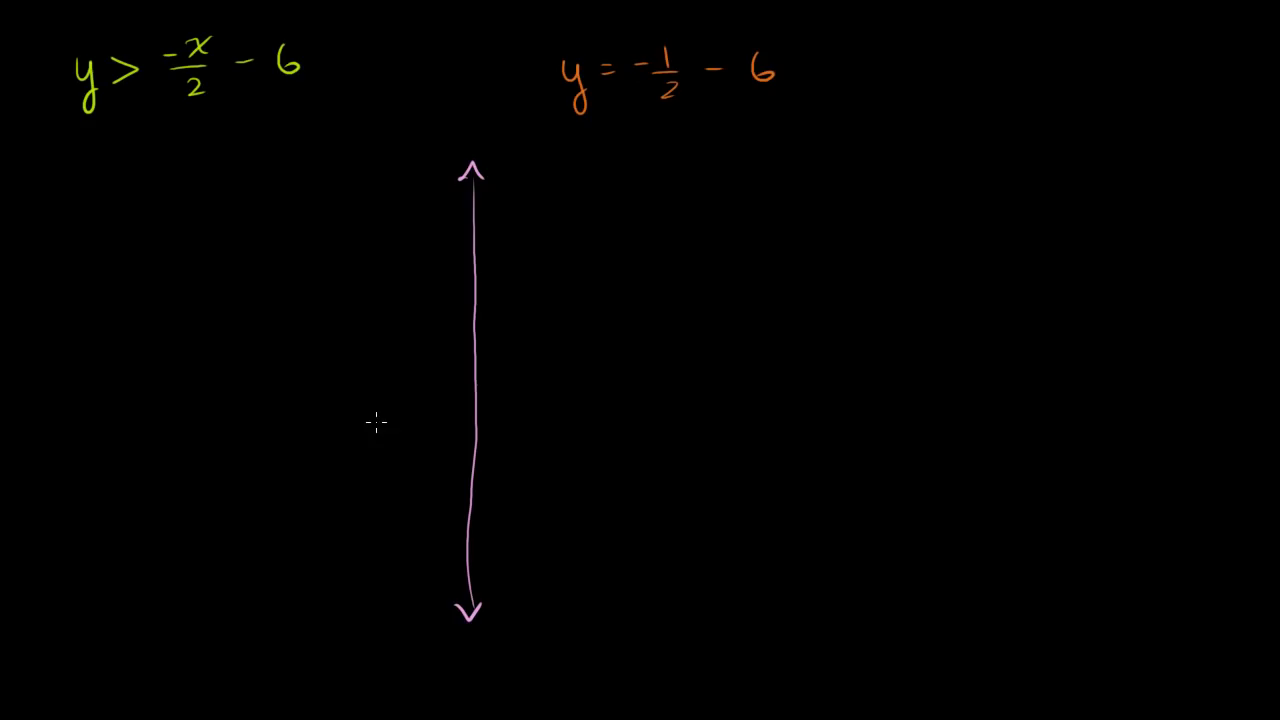 y > -x/2 - 6
y = -1/2 - 6